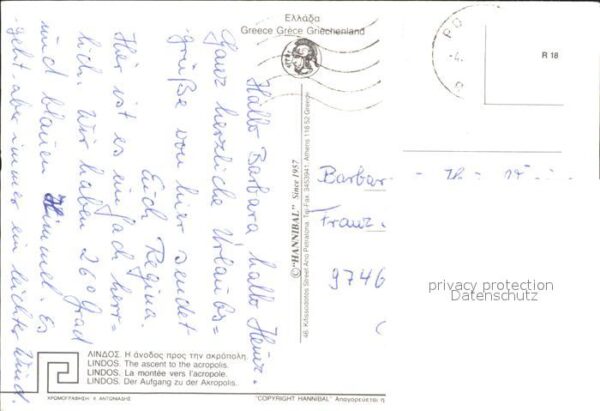 Ελλάδα
Greece Grèce Griechenland
R 18
Hallo Barbara, hallo Heinz.
Ganz herzliche Urlaubs-
grüße von hier sendet
Euch Regina.
Hier ist es einfach herr-
lich. Wir haben 26 Grad
und blauen Himmel. Es
geht aber immer ein leichter Wind.
© "HANNIBAL" Since 1957
46, Kifissodotos Street Ano Petralona, Tel-Fax. 3453941, Athens 118 52 Greece
Barbar
Franz.
9746
privacy protection
Datenschutz
ΛΙΝΔΟΣ. Η άνοδος προς την ακρόπολη.
LINDOS. The ascent to the acropolis.
LINDOS. La montée vers l'acropole.
LINDOS. Der Aufgang zu der Akropolis.
ΧΡΩΜΟΓΡΑΦΗΣΗ ΑΝΤΩΝΙΑΔΗΣ
"COPYRIGHT HANNIBAL" Απαγορεύεται η